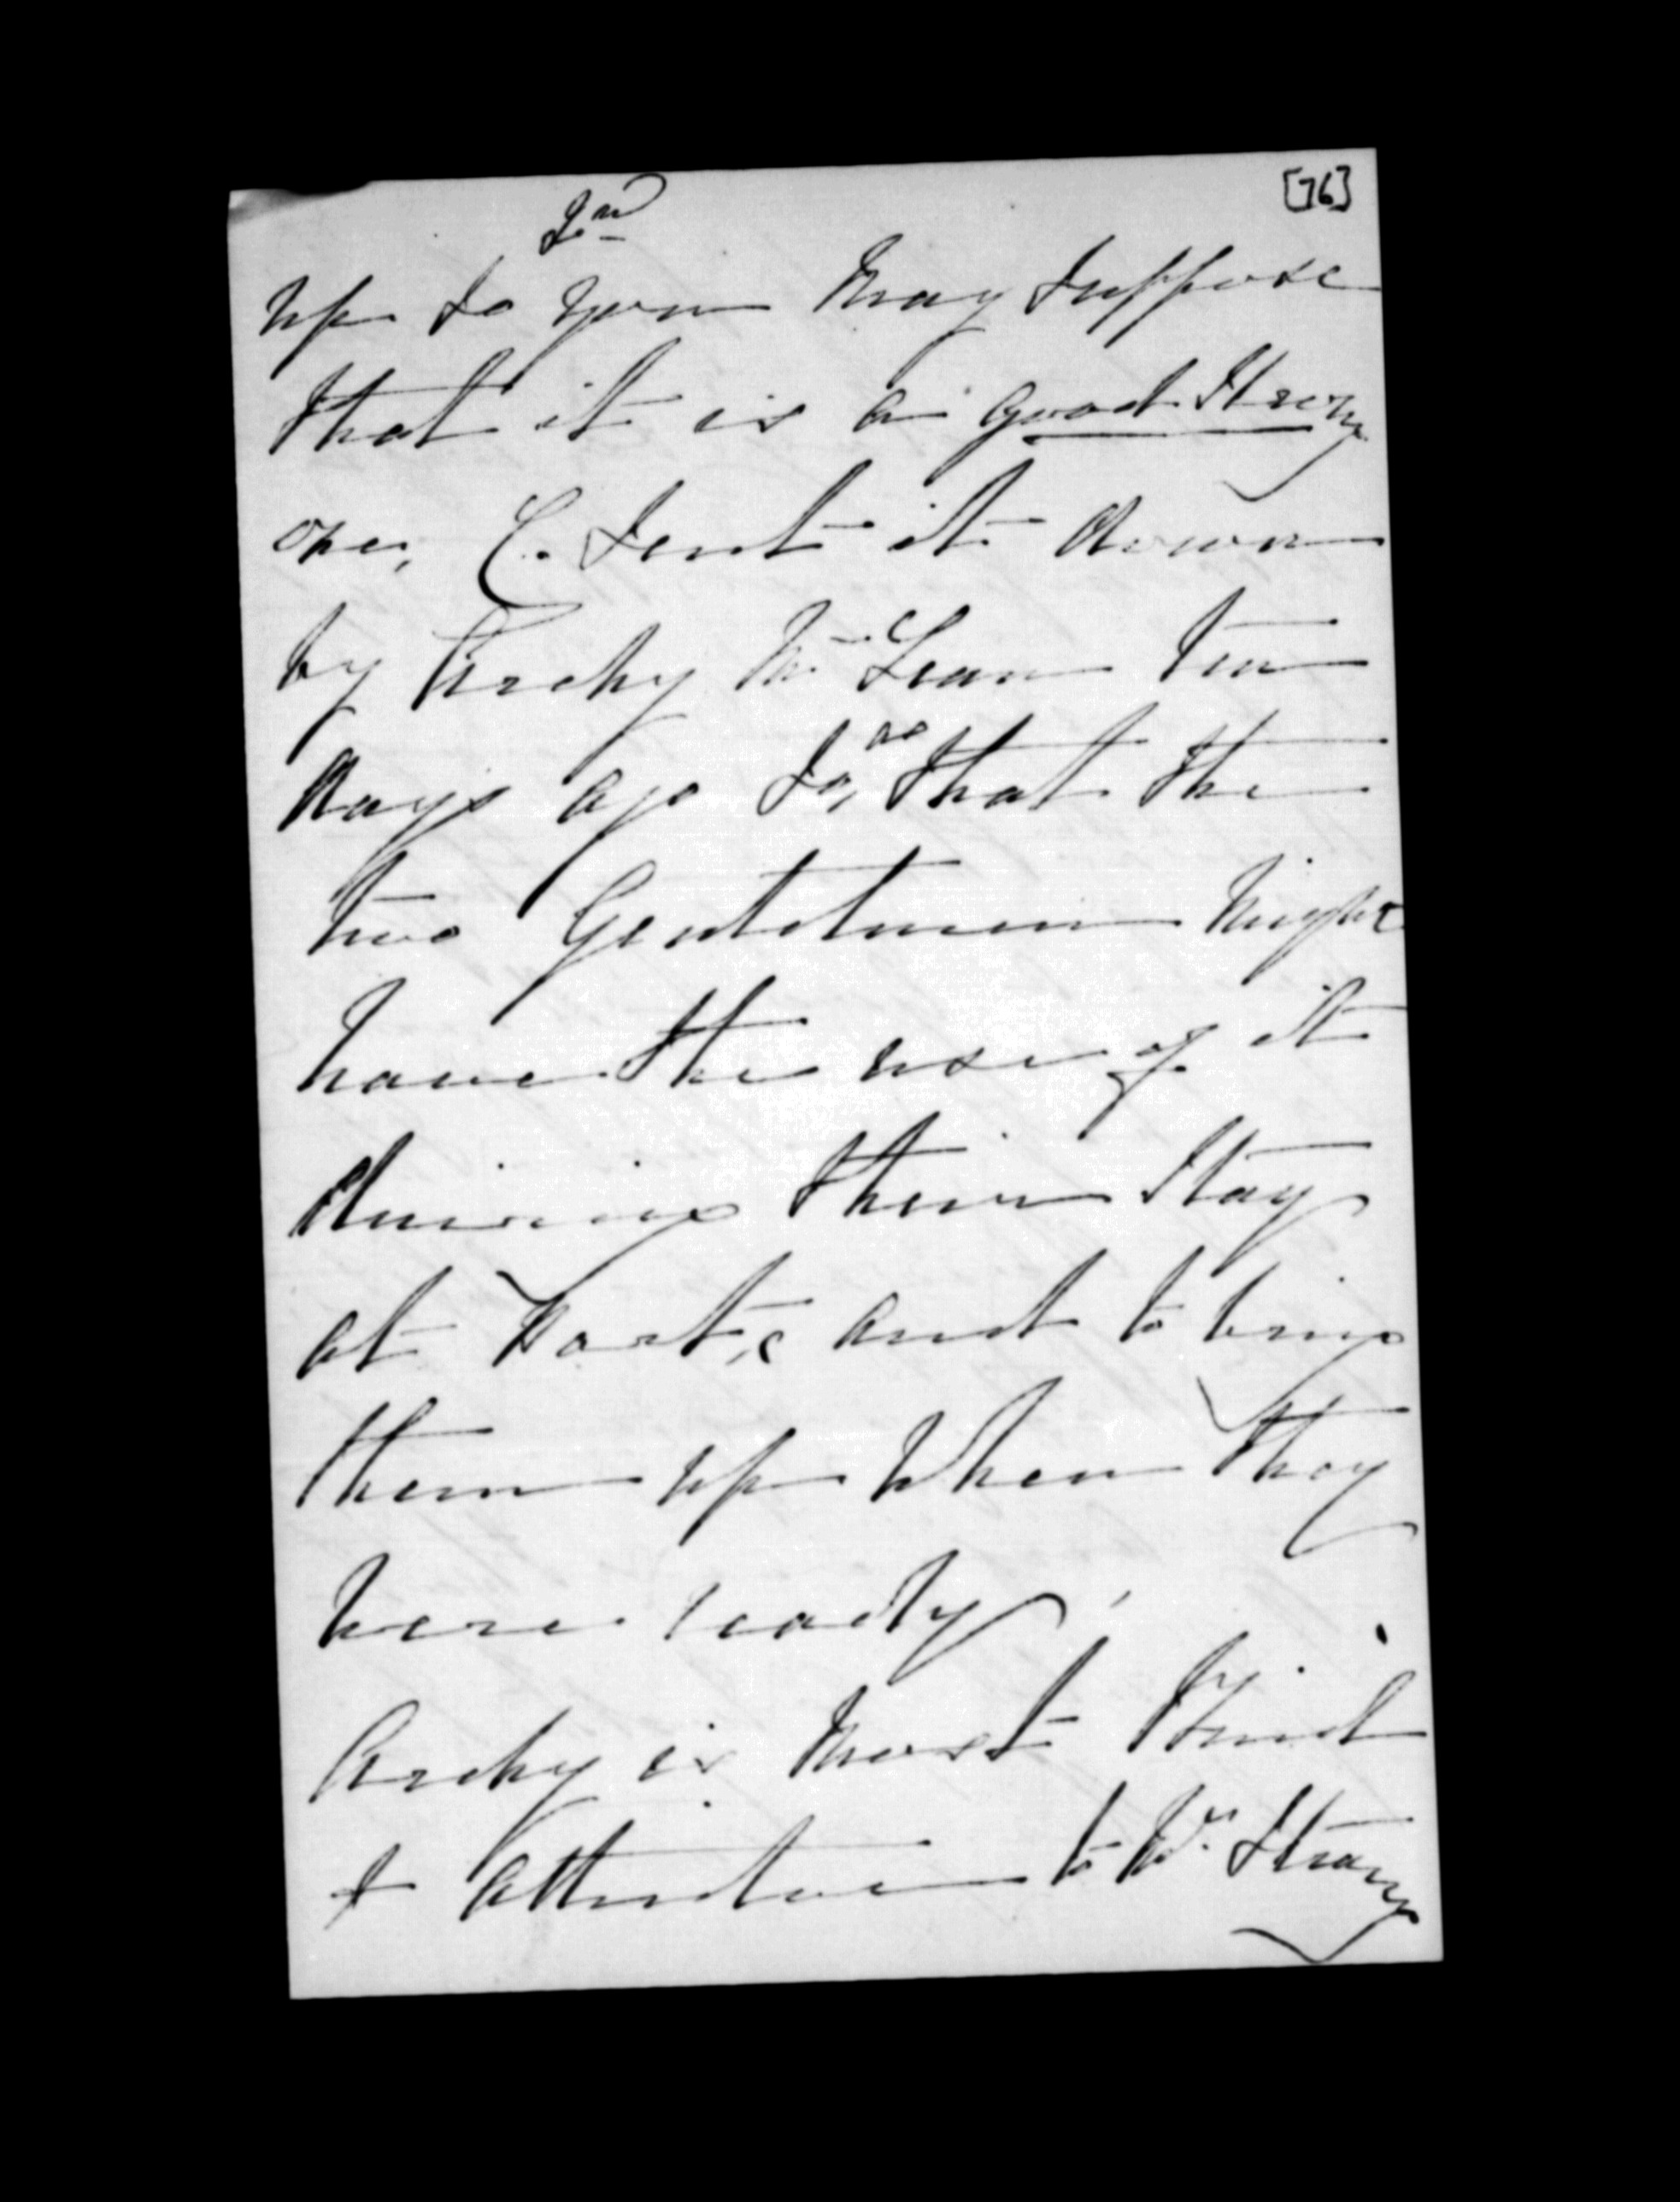 [76]
2nd
up so you may suppose
that it is a good strong
one, C. sent it down
by Archy McLean ten
days ago so, as that the
two Gentlemen might
have the use of it
during their stay
at Port, & and to bring
them up when they
were ready,
Archy is most kind
& attentive to Dr. Strang